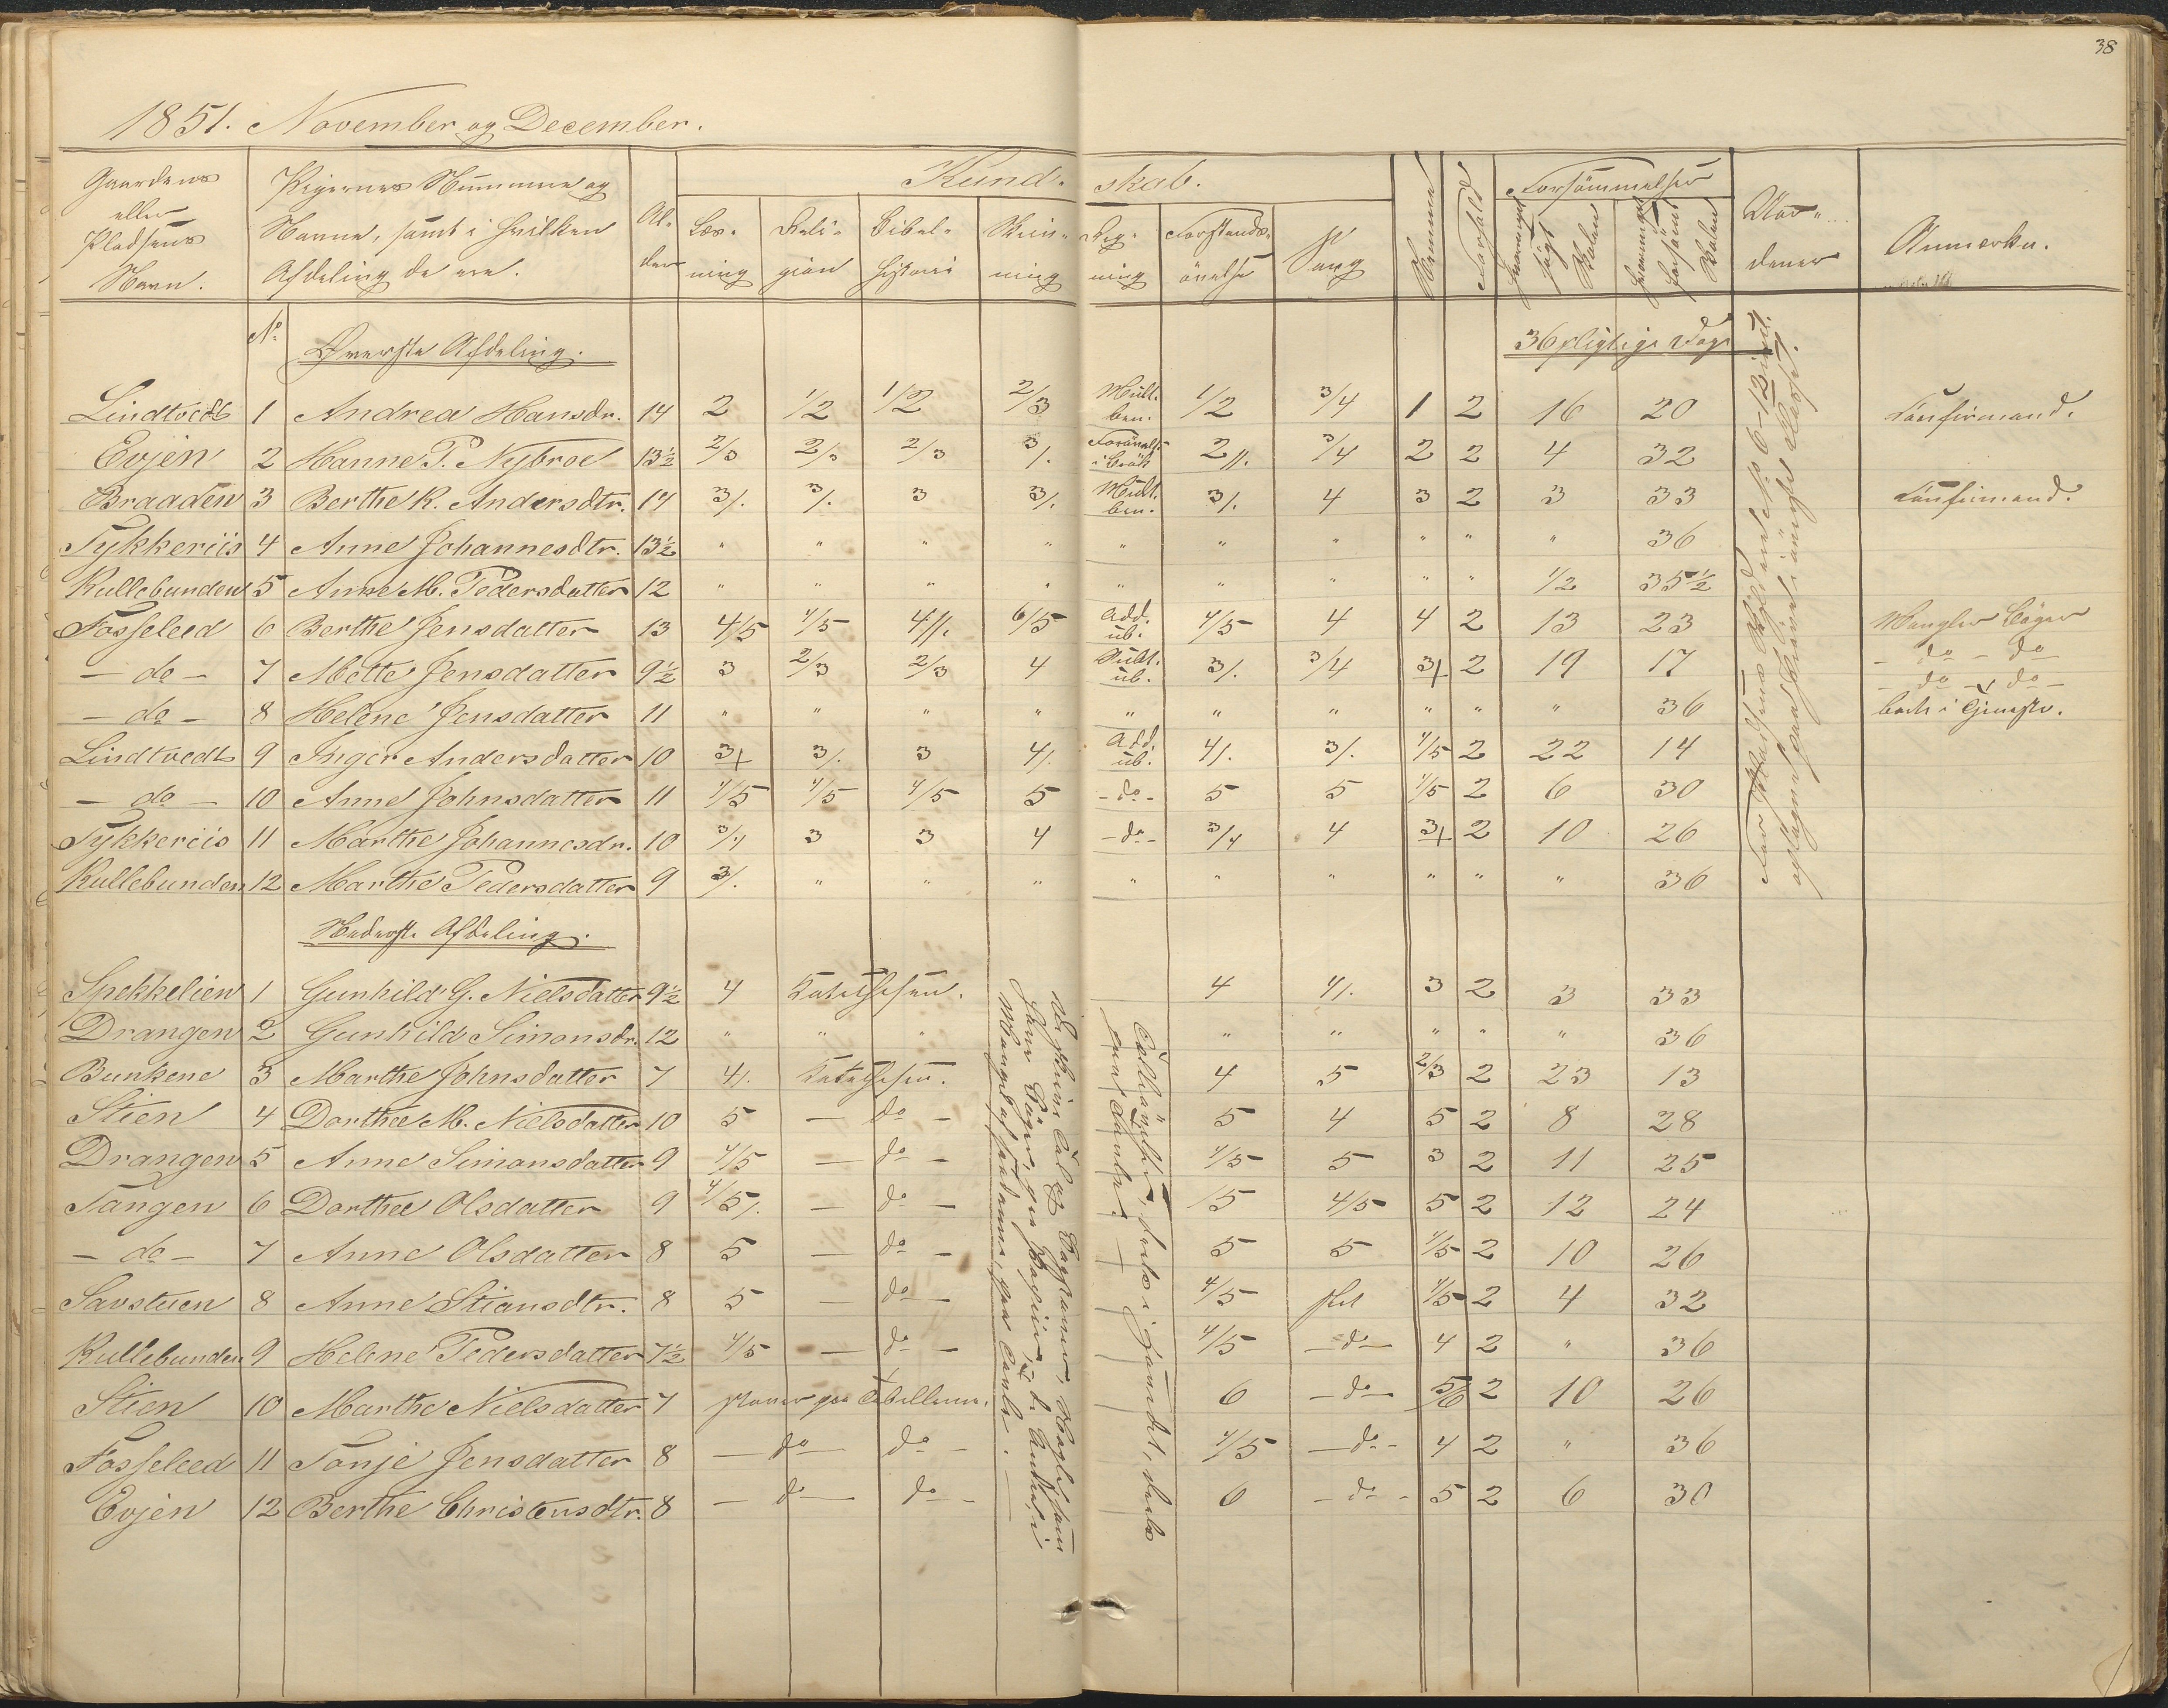 38
1851. November og December.
Gaardens eller Pladsens Navn.
Pigernes Nummer og Navne, samt i hvilken Afdeling de ere.
Alder
Kundskab.
Læsning
Religion
Bibelhistorie
Skrivning
Regning
Forstandsøvelse
Sang
Nemme
Forhold
Forsømmelser
Skolen
Skolen
Anmærkn.
No. Øverste Afdeling.
36 pligtige Dage
Lindtvedt 1 Andrea Hansdr. 14 2 1/2 1/2 2/3 Mult. ben. 1/2 3/4 1 2 16 20 Confirmand.
Evjen 2 Hanne P. Nybroe 13½ 2/3 2/3 2/3 3/. 2//. 3/4 2 2 4 32
Braaden 3 Berthe K. Andersdtr. 14 3/. 3/. 3 3/. Mult. ben. 3/. 4 3 2 3 33 Confirmand.
Tykkeriis 4 Anne Johannesdtr. 13½ " " " " " " " " " " 36
Kullebunden 5 Anne M. Pedersdatter 12 " " " " " " " " " 1/2 35½
Fosseleed 6 Berthe Jensdatter 13 4/5 4/5 4//. 6/5 Add. ub. 4/5 4 4 2 13 23 Mangler Bøger
- do - 7 Mette Jensdatter 9½ 3 2/3 2/3 4 Subt. ub. 3/. 3/4 3+ 2 19 17 - do - do
- do - 8 Helene Jensdatter 11 " " " " " " " " " " 36 - do - do - borte i Tjeneste.
Lindtvedt 9 Inger Andersdatter 10 3+ 3/. 3 4/. Add. ub. 4/. 3/. 4/5 2 22 14
- do - 10 Anne Johnsdatter 11 4/5 4/5 4/5 5 - do - 5 5 4/5 2 6 30
Tykkeriis 11 Marthe Johannesdr. 10 3/4 3 3 4 - do - 3/4 4 3+ 2 10 26
Kullebunden 12 Marthe Pedersdatter 9 3/. " " " " " " " " " 36
Nederste Afdeling.
Spekkelien 1 Gunhild G. Nielsdatter 9½ 4 Katechesen. 4 4/. 3 2 3 33
Drangen 2 Gunhild Simonsdr. 12 " " " " " " " " 36
Bunkene 3 Marthe Johnsdatter 7 4/. Katechesen. 4 5 2/3 2 23 13
Stien 4 Dorthee M. Nielsdatter 10 5 - do - 5 4 5 2 8 28
Drangen 5 Anne Simonsdatter 9 4/5 - do - 4/5 5 3 2 11 25
Tangen 6 Dorthee Olsdatter 9 4/5/. - do - 5 4/5 5 2 12 24
- do - 7 Anne Olsdatter 8 5 - do - 5 5 4/5 2 10 26
Savstuen 8 Anne Stiansdtr. 8 5 - do - 4/5 slet 4/5 2 4 32
Kullebunden 9 Helene Pedersdatter 7½ 4/5 - do - 4/5 - do - 4 2 " 36
Stien 10 Marthe Nielsdatter 7 staver paa Tabellerne. 6 - do - 5/6 2 10 26
Fosseleed 11 Tonje Jensdatter 8 - do - do - 4/5 - do - 4 2 " 36
Evjen 12 Berthe Christensdtr. 8 - do - do - 6 - do - 5 2 6 30